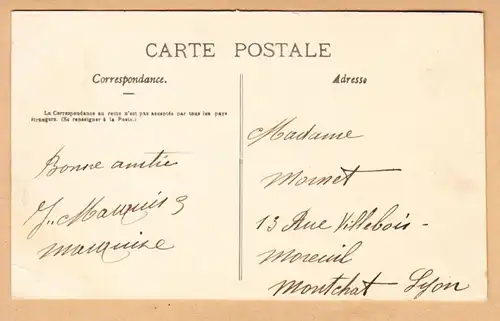 CARTE POSTALE
Correspondance.
La Correspondance au recto n'est pas acceptée par tous les pays
étrangers. (Se renseigner à la Poste.)
Bonne amitié
J. Marquis &
marquise
Adresse
Madame
Mornet
13 Rue Villebois-
Moreuil
Montchat-Lyon